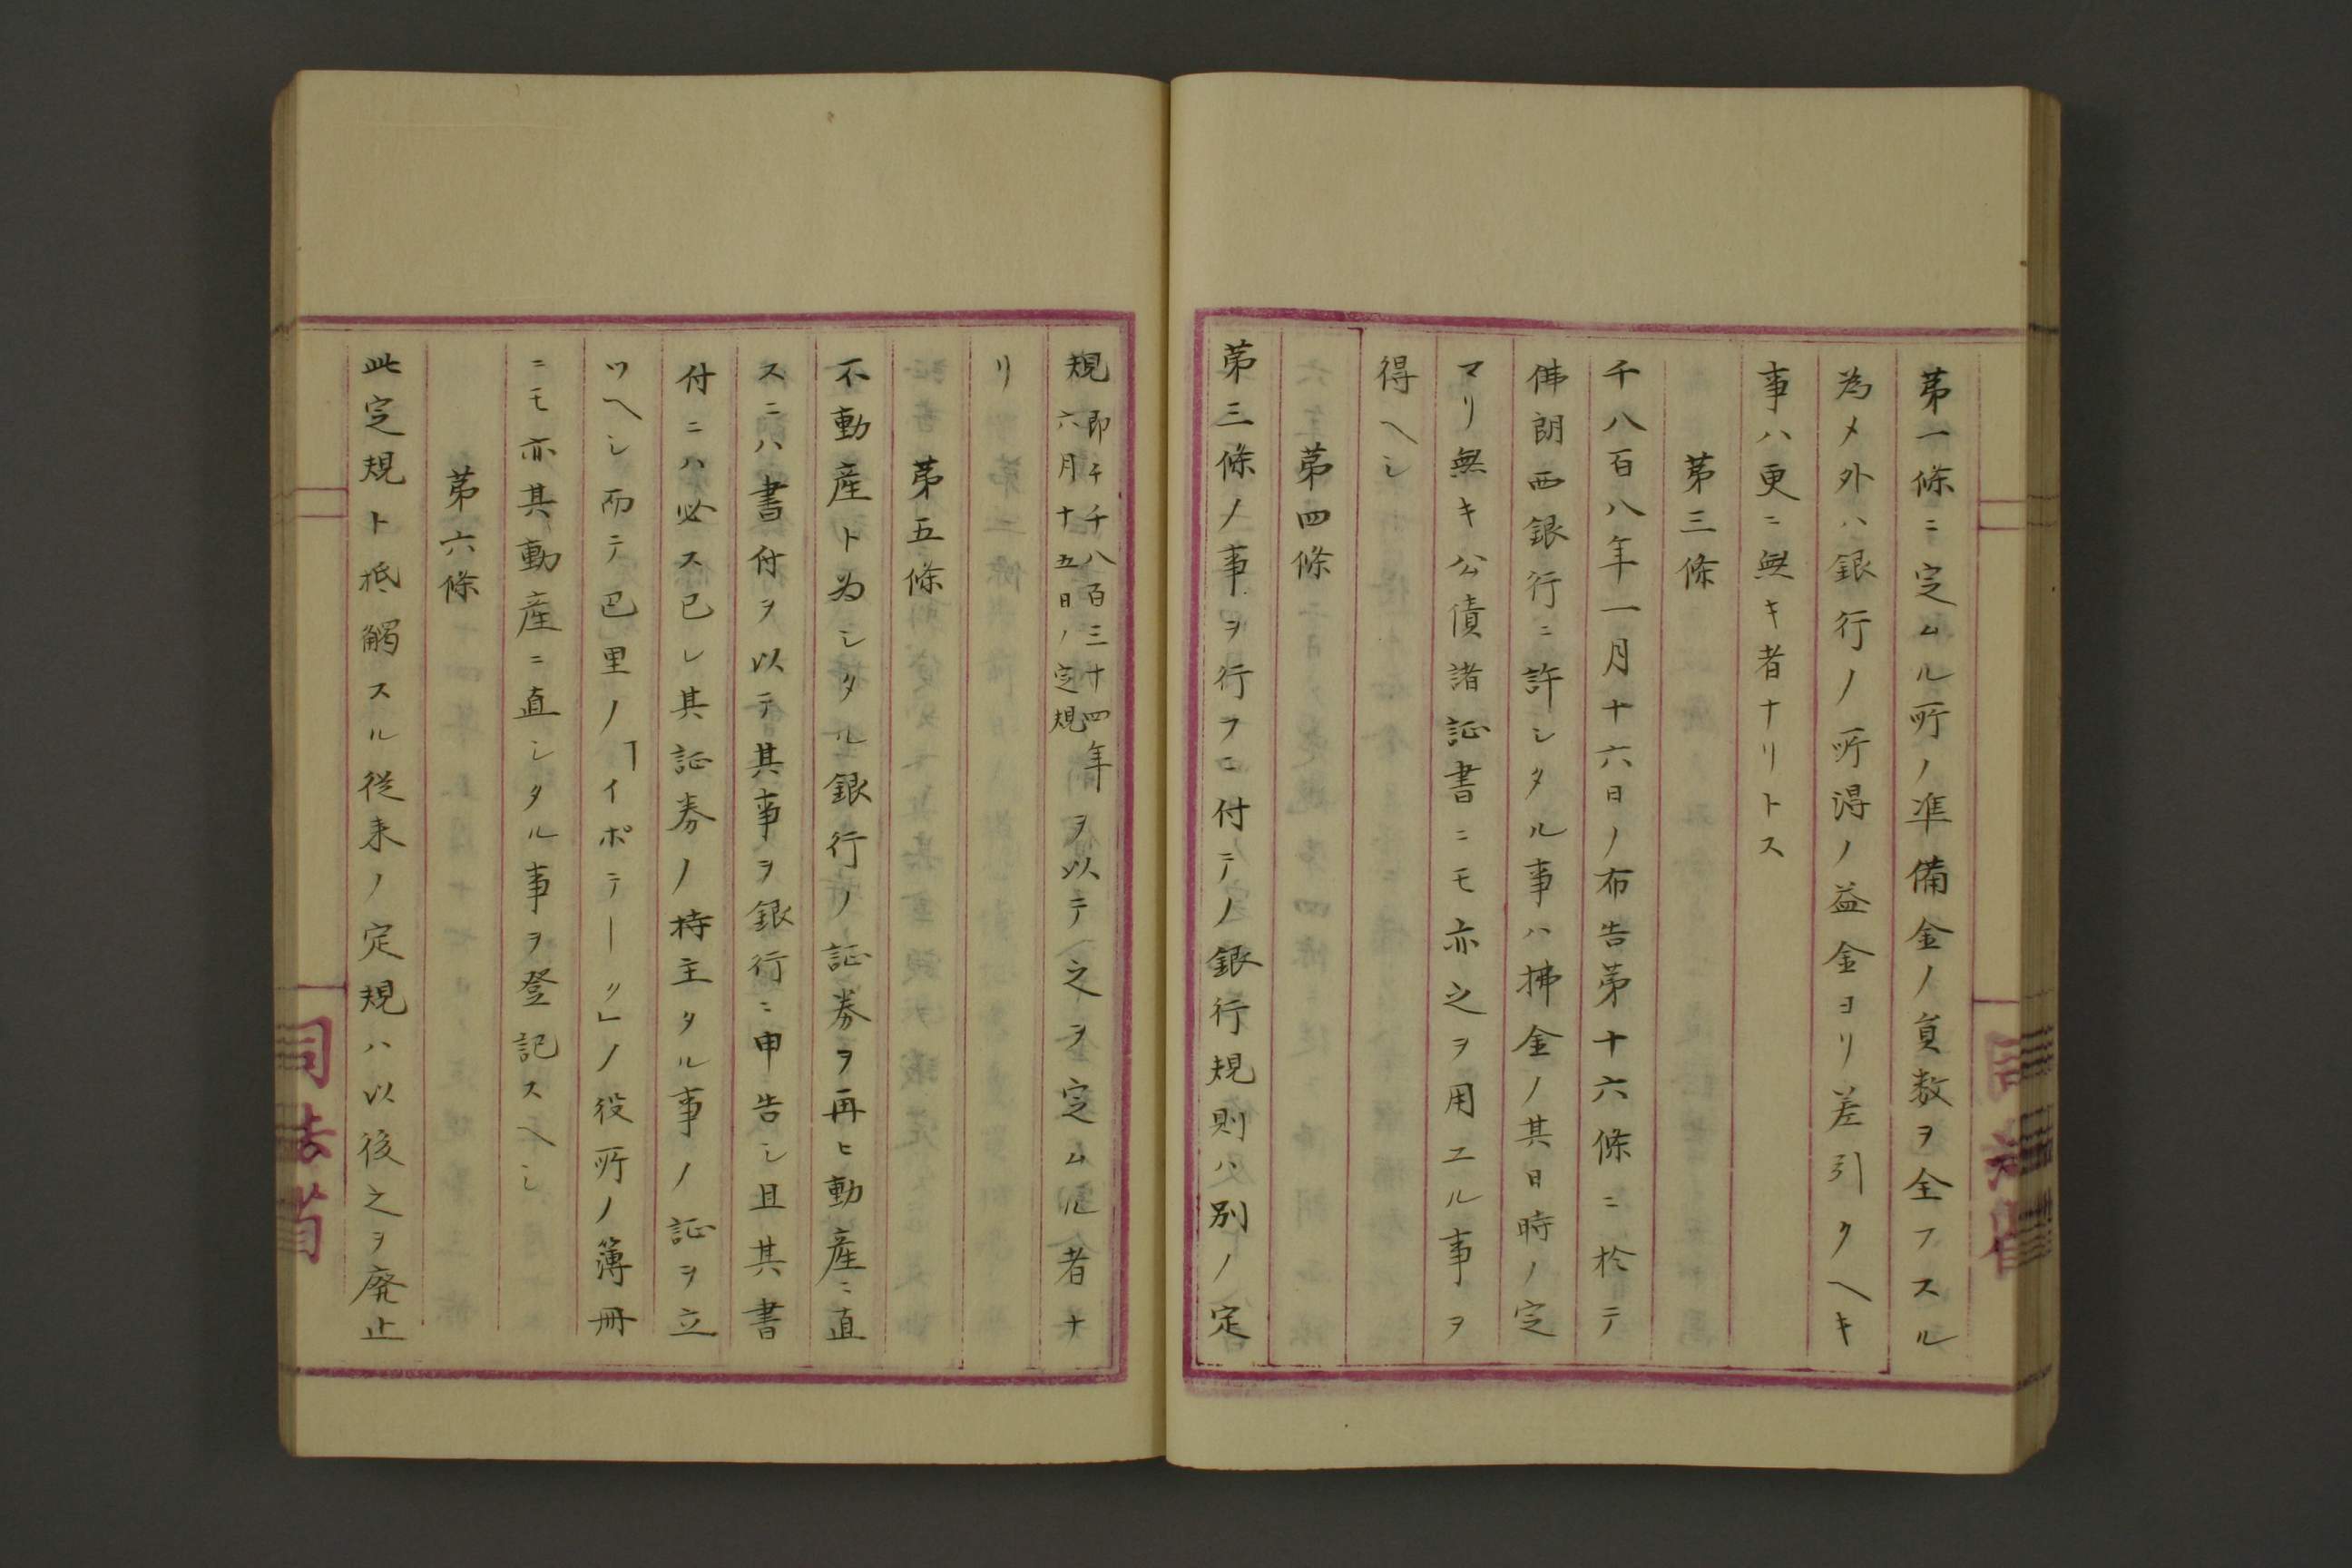 第一條ニ定ムル所ノ準備金ノ員数ヲ全フスル
為メ外ハ銀行ノ所得ノ益金ヨリ差引クヘキ
事ハ更ニ無キ者ナリトス
第三條
千八百八年一月十六日ノ布告第十六條ニ於テ
佛朗西銀行ニ許シタル事ハ拂金ノ其日時ノ定
マリ無キ公債諸証書ニモ亦之ヲ用エル事ヲ
得ヘシ
第四條
第三條ノ事ヲ行フニ付テノ銀行規則ハ別ノ定
規
即チ千八百三十四年
六月十五日ノ定規
ヲ以テ之ヲ定ムル者ナ
リ
第五條
不動産ト為シタル銀行ノ証券ヲ再ヒ動産ニ直
スニハ書付ヲ以テ其事ヲ銀行ニ申告シ且其書
付ニハ必ス已レ其証券ノ持主タル事ノ証ヲ立
ツヘシ而テ巴里ノ「イポテーク」ノ役所ノ簿冊
ニモ亦其動産ニ直シタル事ヲ登記スヘシ
第六條
此定規ト抵觸スル従来ノ定規ハ以後之ヲ廃止
司法省